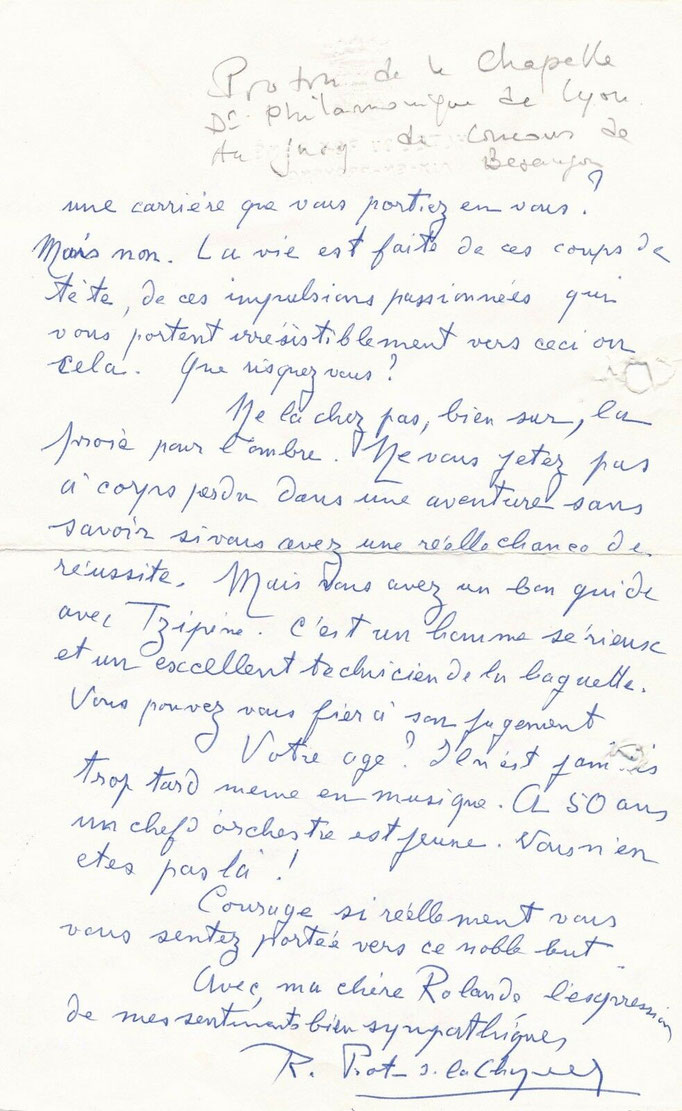 Proton de la Chapelle
Dr. Philarmonique de Lyon
Au jury du Concours de
Besançon
une carrière que vous portiez en vous?
Mais non. La vie est faite de ces coups de
tête, de ces impulsions passionnées qui
vous portent irrésistiblement vers ceci ou
cela. Que risquez vous?
Ne lachez pas, bien sur, la
proie pour l'ombre. Ne vous jetez pas
à corps perdu dans une aventure sans
savoir si vous avez une réelle chance de
réussite. Mais vous avez un bon guide
avec Tzipine. C'est un homme sérieux
et un excellent technicien de la baguette.
Vous pouvez vous fier à son jugement
Votre age? Il n'est jamais
trop tard meme en musique. A 50 ans
un chef d'orchestre est jeune. Vous n'en
etes pas là!
Courage si réellement vous
vous sentez portée vers ce noble but
Avec, ma chère Rolande l'expression
de mes sentiments bien sympathiques
R. Proton de la Chapelle